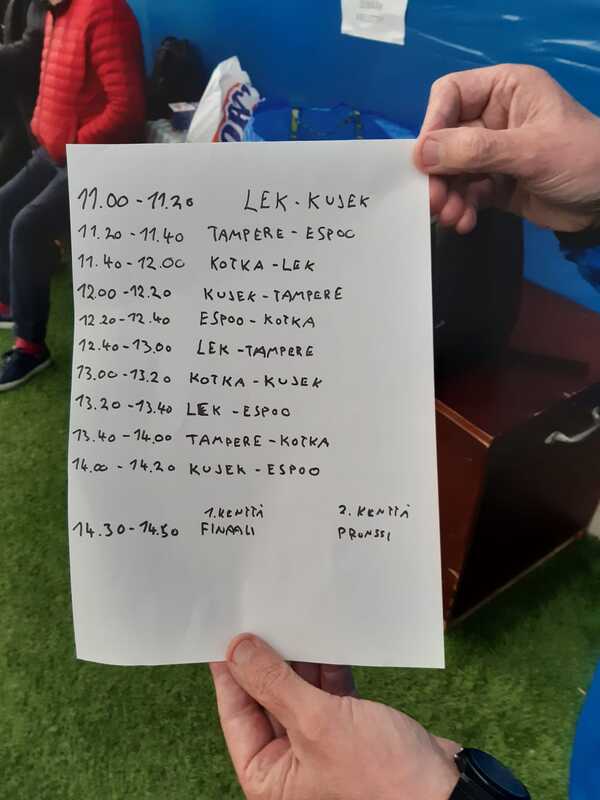 11.00 - 11.20 LEK - KUJEK
11.20 - 11.40 TAMPERE - ESPOO
11.40 - 12.00 KOTKA - LEK
12.00 - 12.20 KUJEK - TAMPERE
12.20 - 12.40 ESPOO - KOTKA
12.40 - 13.00 LEK - TAMPERE
13.00 - 13.20 KOTKA - KUJEK
13.20 - 13.40 LEK - ESPOO
13.40 - 14.00 TAMPERE - KOTKA
14.00 - 14.20 KUJEK - ESPOO
1. KENTTÄ 2. KENTTÄ
14.30 - 14.50 FINAALI PRONSSI